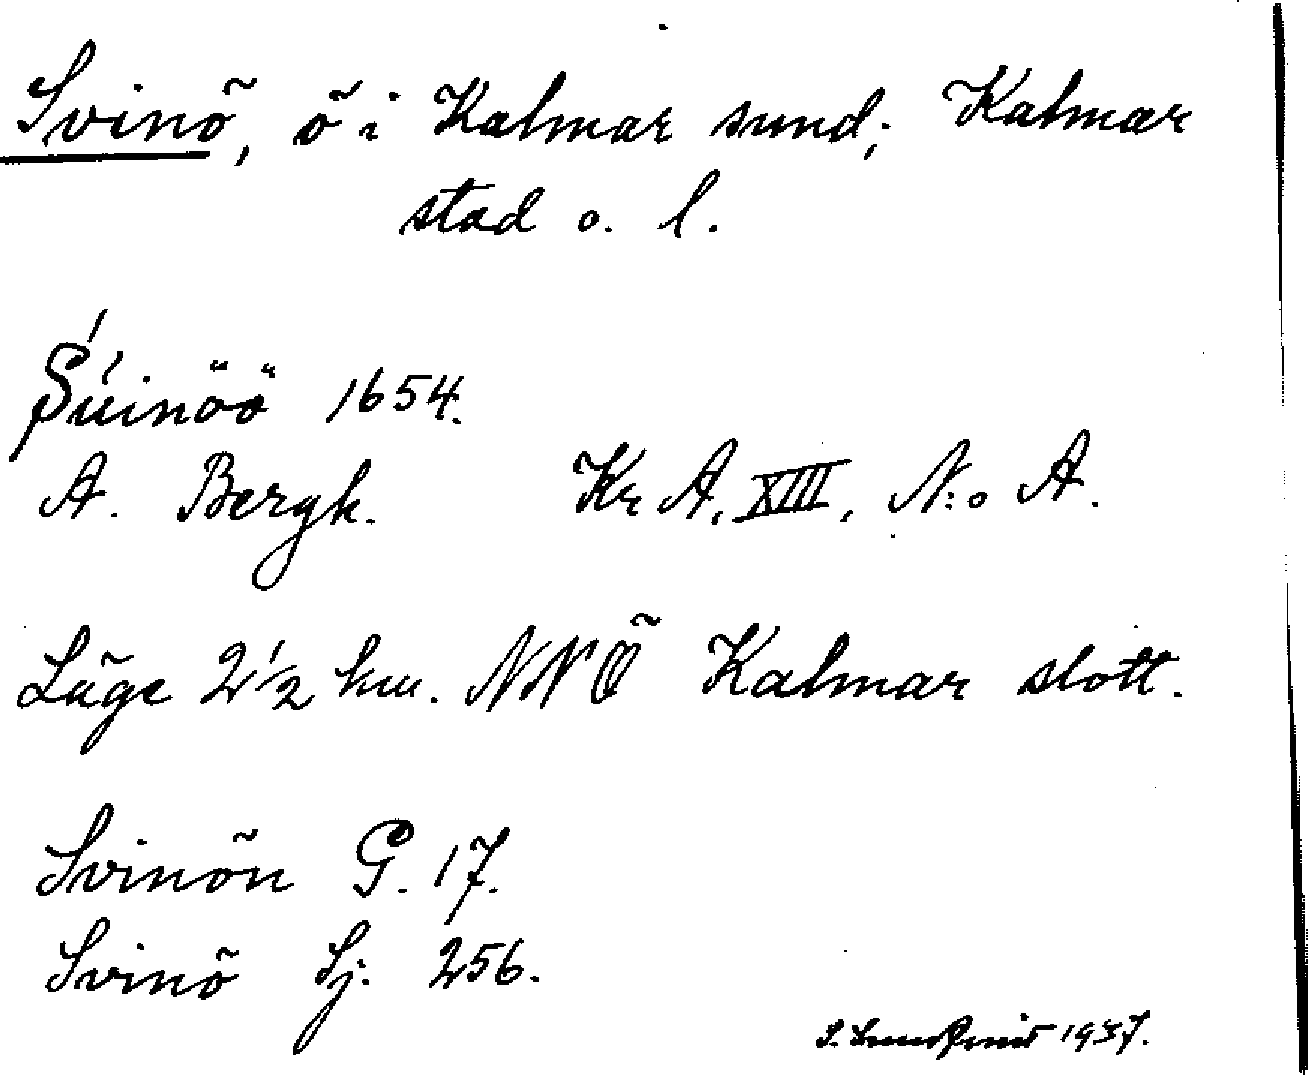 Svinö, ö i Kalmar sund; Kalmar
stad o. l.
Suinöö 1654.
A. Bergh. Kr A, XIII, N:o A.
Läge 2 1/2 km. NNÖ Kalmar slott.
Svinön G. 17.
Svinö Sj. 256.
S. 1937.